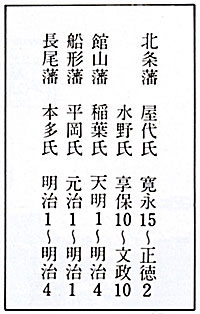 北条藩　屋代氏　寛永15～正徳2
水野氏　享保10～文政10
館山藩　稲葉氏　天明1～明治4
船形藩　平岡氏　元治1～明治1
長尾藩　本多氏　明治1～明治4